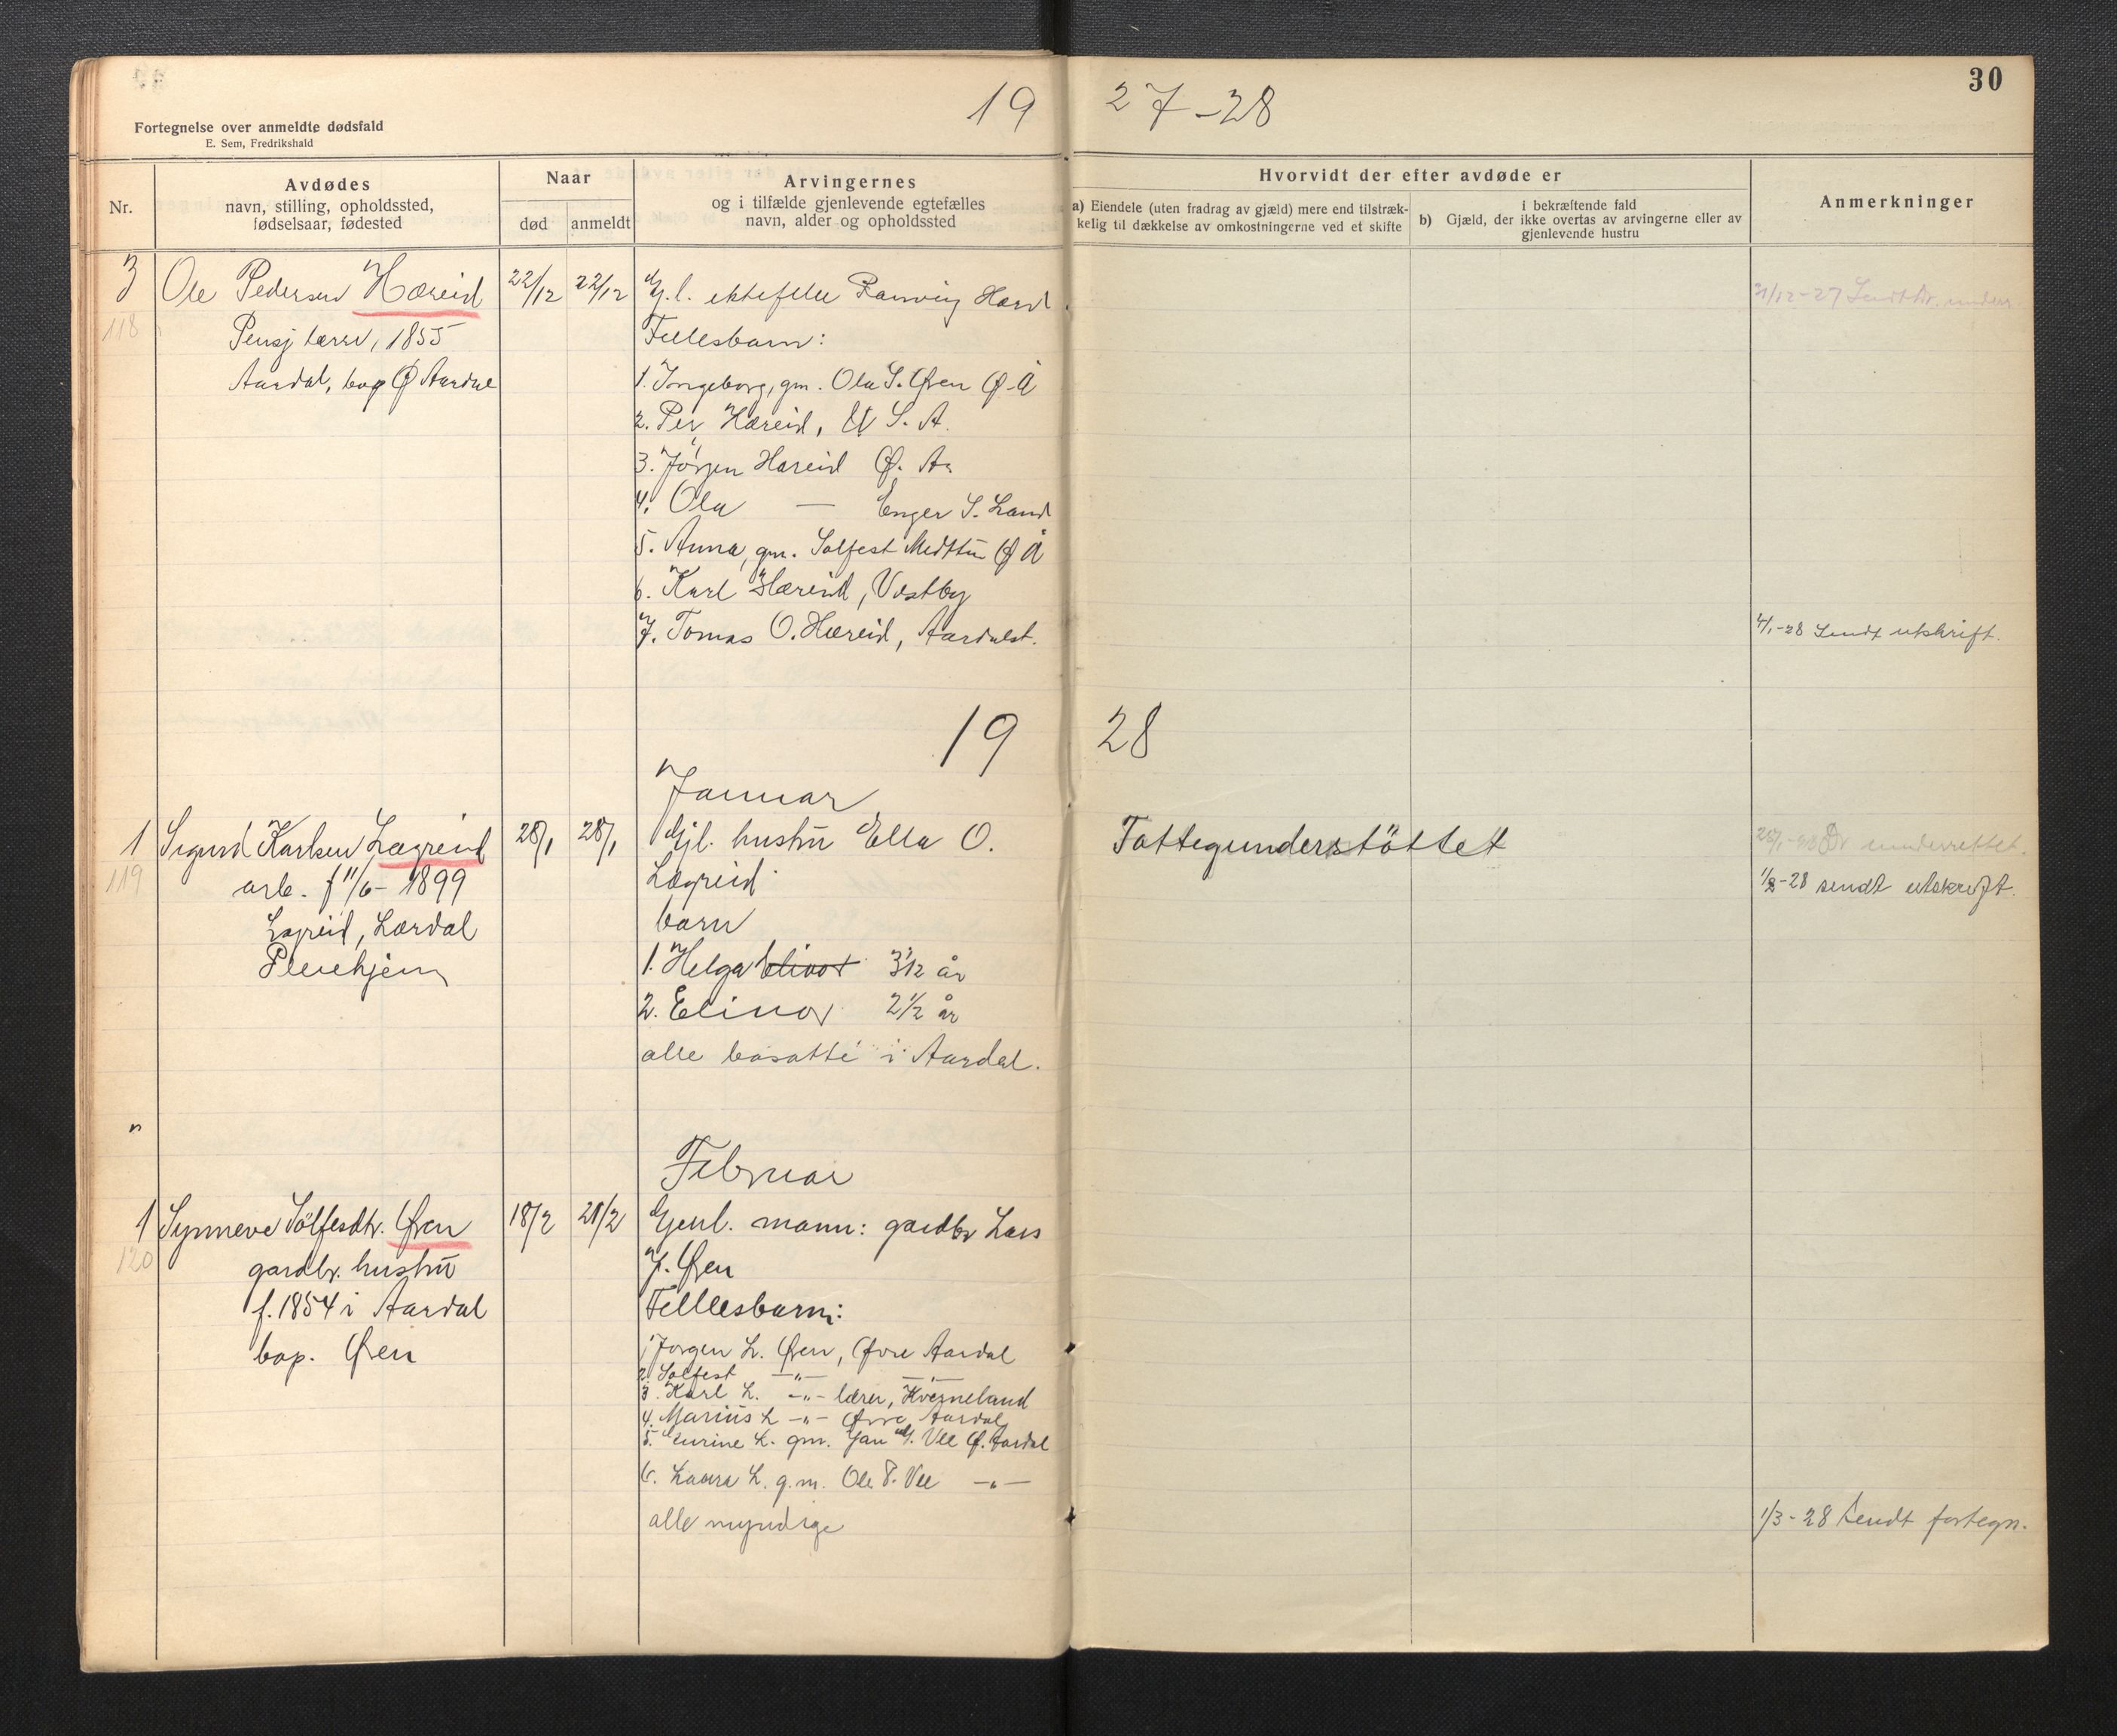 19 27-28
30
Fortegnelse over anmeldte dødsfald
E. Sem, Fredrikshald
Nr.
Avdødes
navn, stilling, opholdssted,
fødselsaar, fødested
Naar
død
anmeldt
Arvingernes
og i tilfælde gjenlevende egtefælles
navn, alder og opholdssted
Hvorvidt der efter avdøde er
a) Eiendele (uten fradrag av gjæld) mere end tilstræk-
kelig til dækkelse av omkostningerne ved et skifte
i bekræftende fald
b) Gjæld, der ikke overtas av arvingerne eller av
gjenlevende hustru
Anmerkninger
3 Ole Pedersen Hæreid 22/12 22/12 Gj.l. ektefelle Hæreid
118 Pensj lærer, 1855 Fellesbarn:
Aardal, bop Ø Aardal 1. Ingeborg, gm. Ola S. Øren Ø-Å
2. Per Hæreid, U S. A.
3. Jörgen Hæreid Ø. Aa
4. Ola — Enger S. Land
5. Anna, gm. Solfest Midttun Ø Å
6. Karl Hæreid, Vestby
7. Tomas O. Hæreid, Aardalst. 4/1-28 Sendt utskrift.
19 28
Januar
1 Sigurd Karlsen Lægreid 28/1 28/1 Gjl. hustru Ella O. Fattigunderstöttet underrettet.
119 arb. f 11/6-1899 Lægreid 1/2-28 sendt utskrift.
Lægreid, Lærdal barn
Pleiehjem 1. Helga Elinor 3 1/2 år
2. Elinor 2 1/2 år
alle bosatte i Aardal.
Februar
1 Synneve Sölfestdtr. Øren 18/2 21/2 Gjenl. mann: gardbr Lars
120 gardbr. hustru J. Øren
f. 1854 i Aardal Fellesbarn:
bop. Øren 1. Jorgen L. Øren, Øvre Aardal
2. Solfest —"— —"—
3. Karl L. -"- lærer, Kverneland
4. Marius L -"- Øvre Aardal
5. L. gm. Jan J. Vee Ø. Aardal
6. Laura L. g.m. Ole P. Vee —"—
alle myndige 1/3-28 Sendt fortegn.